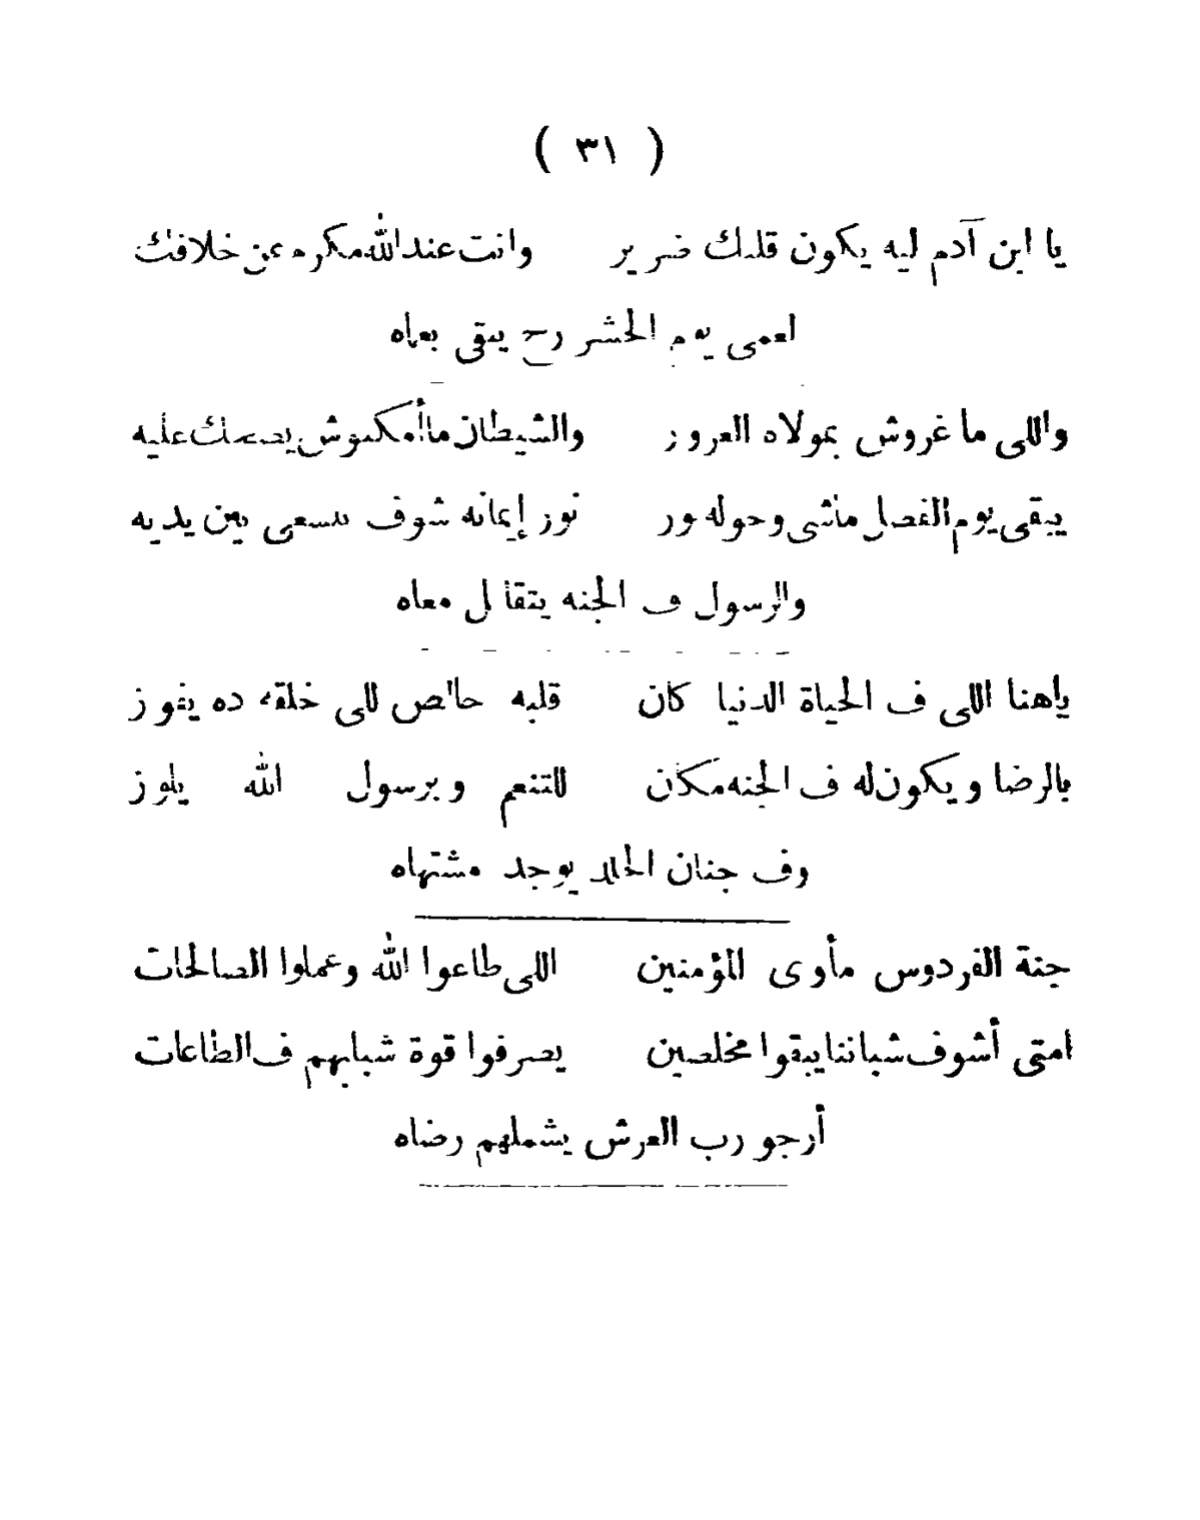 ( ٣١ )
يا ابن آدم ليه يكون قلبك ضرير وانت عند الله مكره عن خلافك
اعمى يوم الحشر رح يبقى بعماه
واللى ما غروش بمولاه الغرور والشيطان ما أمكنوش يضحك عليه
يبقى يوم الفصل ماشى وحوله نور نور إيمانه شوف تسعى بين يديه
والرسول ف الجنه يتقابل معاه
ياهنا اللى ف الحياة الدنيا كان قلبه خالص للى خلقه ده يفوز
بالرضا ويكون له ف الجنه مكان للتنعم وبرسول الله يلوز
وف جنان الخلد يوجد مشتهاه
جنة الفردوس مأوى المؤمنين اللى طاعوا الله وعملوا الصالحات
امتى أشوف شباننا يبقوا مخلصين يصرفوا قوة شبابهم ف الطاعات
أرجو رب العرش يشملهم رضاه